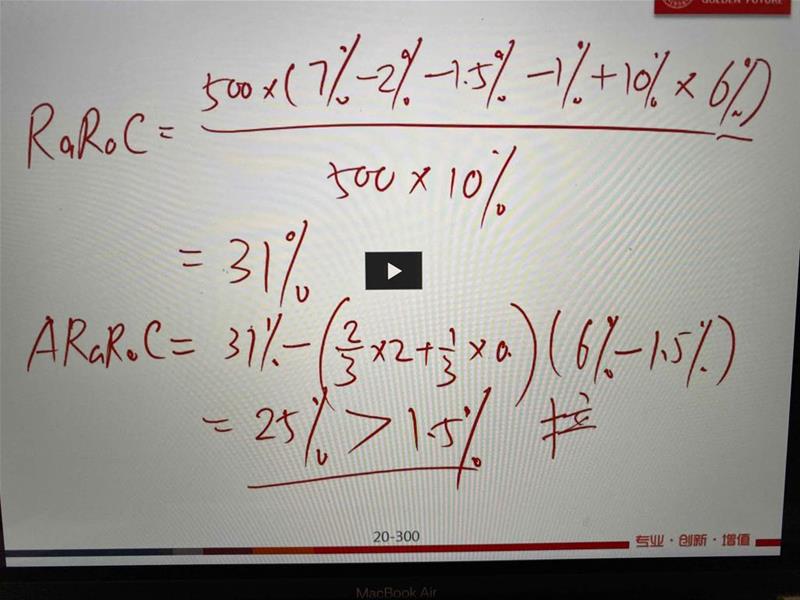 GOLDEN FUTURE
RaRoC = 500×(7%-2%-1.5%-1%+10%×6%) / 500×10%
= 31%
ARaRoC = 31%-(2/3×2+1/3×0.)(6%-1.5%)
= 25% > 1.5%
20-300
专业·创新·增值
MacBook Air